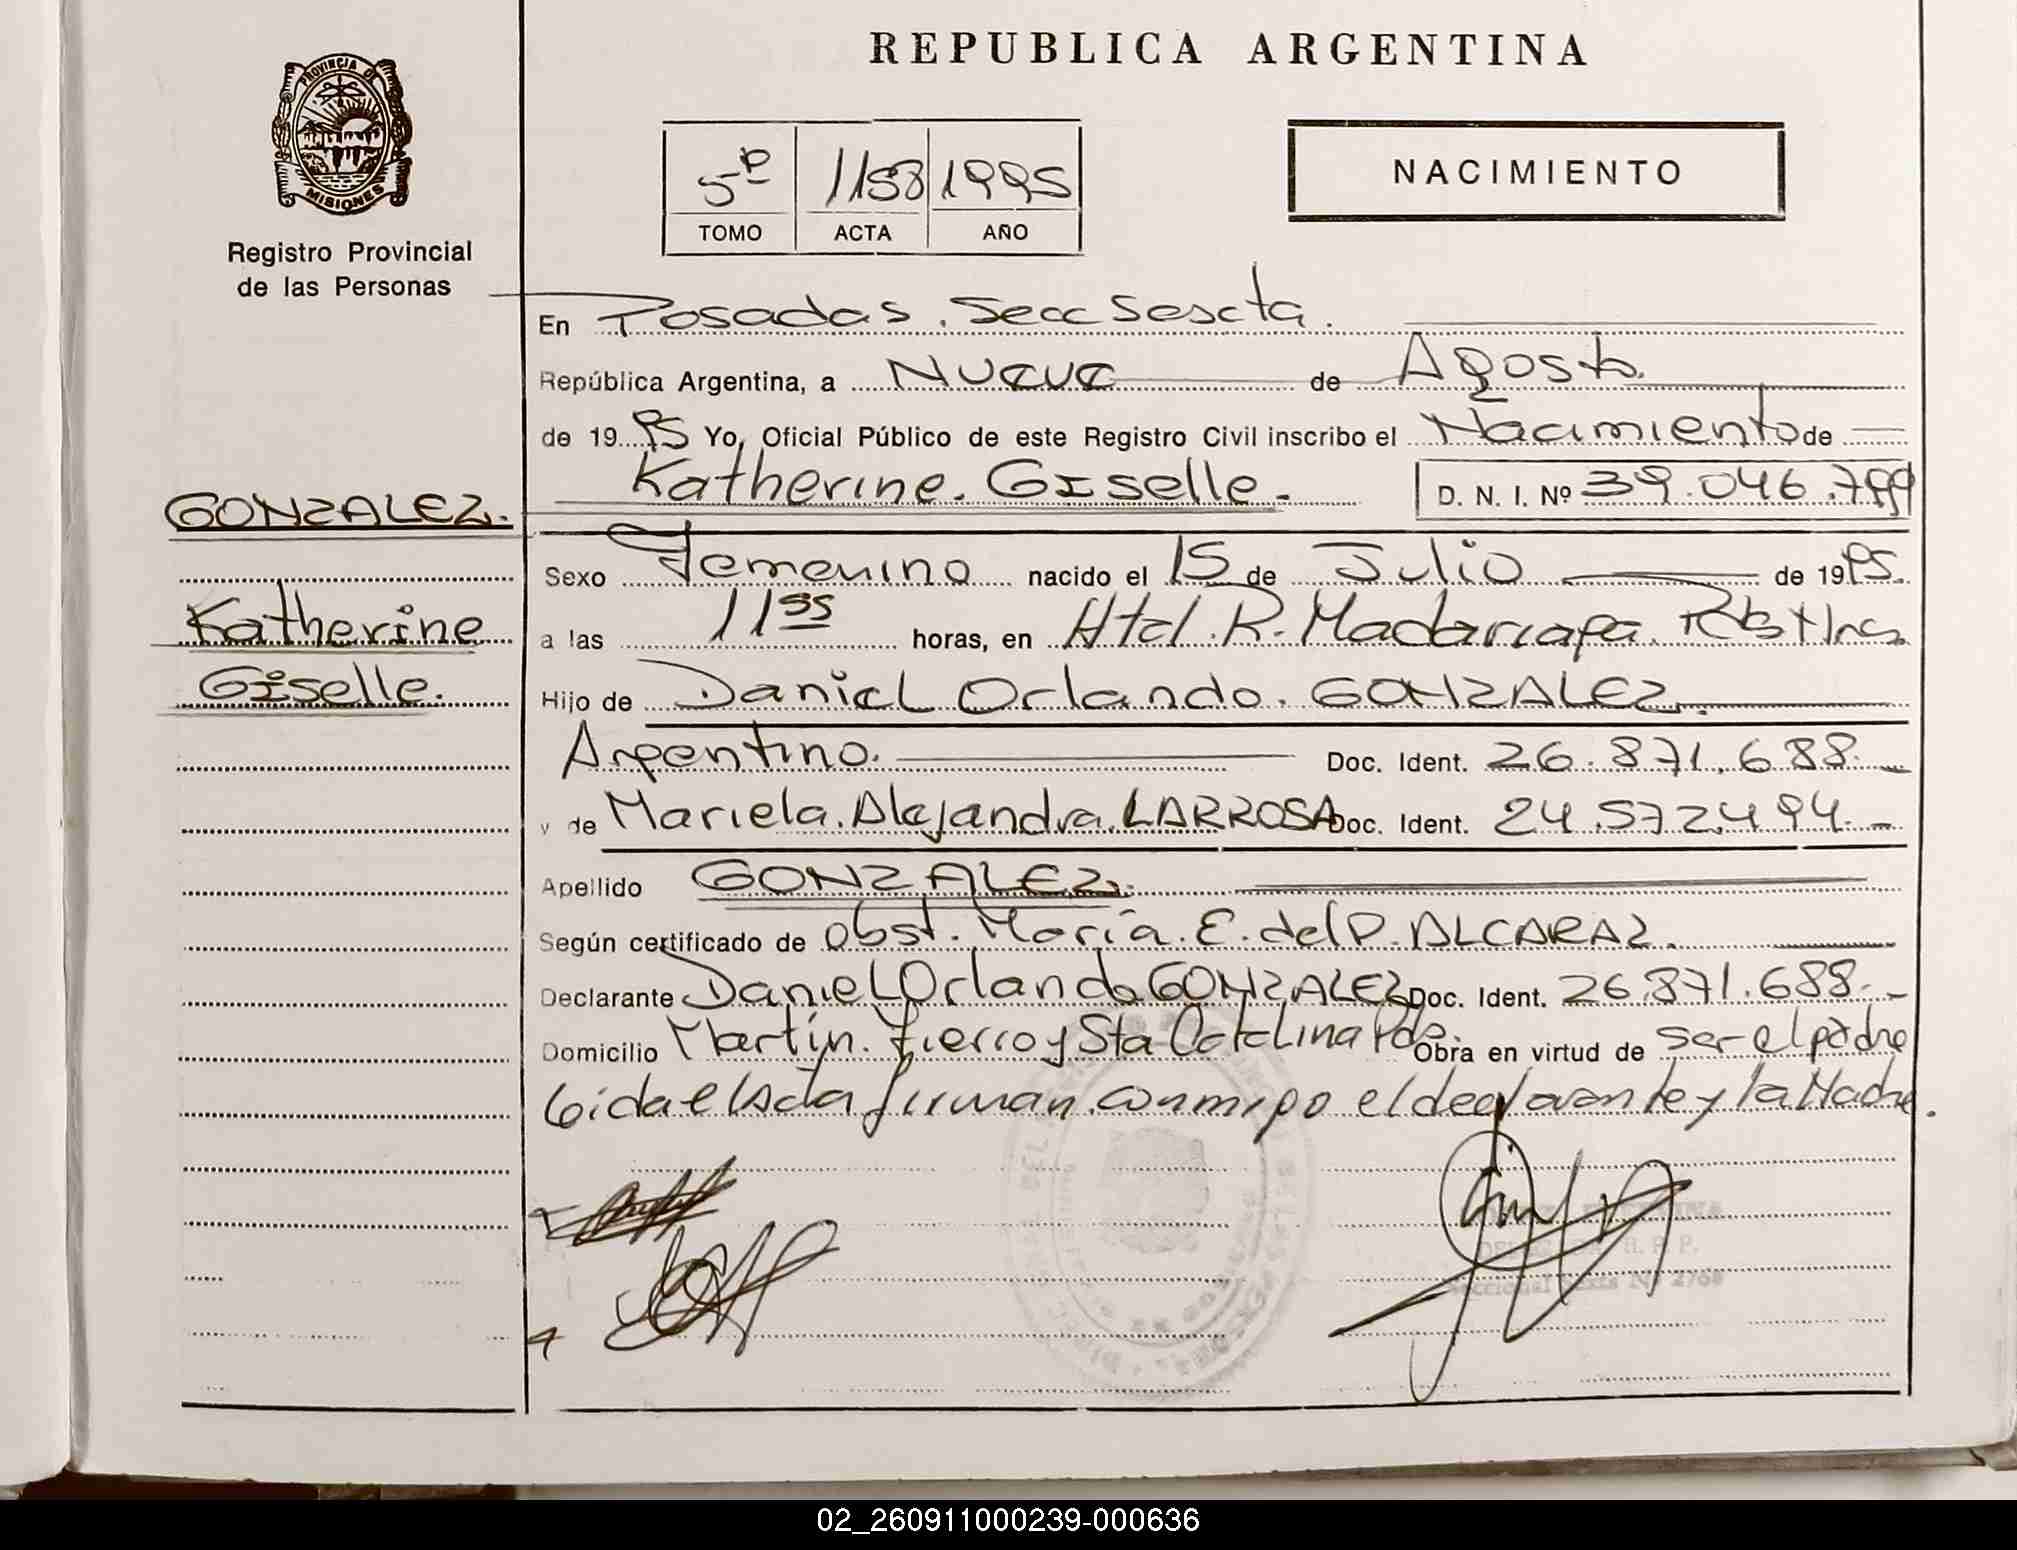 REPUBLICA ARGENTINA
PROVINCIA DE
MISIONES
Registro Provincial
de las Personas
5º 1158 1995
TOMO ACTA AÑO
NACIMIENTO
En Posadas. Secc Sescta.
República Argentina, a Nueve de Agosto.
de 19 95 Yo, Oficial Público de este Registro Civil inscribo el Nacimiento de
Katherine. Giselle. D. N. I. Nº 39.046.799
GONZALEZ.
Katherine
Giselle.
Sexo Femenino nacido el 15 de Julio de 19 95.
a las 11 55 horas, en Htal. R. Madariaga.
Hijo de Daniel Orlando. GONZALEZ.
Argentino. Doc. Ident. 26.871.688.-
y de Mariela. Alejandra. LARROSA Doc. Ident. 24.572.494.-
Apellido GONZALEZ.
Según certificado de Obst. María. E. del P. ALCARAZ.
Declarante Daniel Orlando GONZALEZ Doc. Ident. 26.871.688.-
Domicilio Martín. Fierro y Sta Catalina Pdas. Obra en virtud de ser el padre
Leida el Acta firman conmigo el declarante y la Madre.
02_260911000239-000636